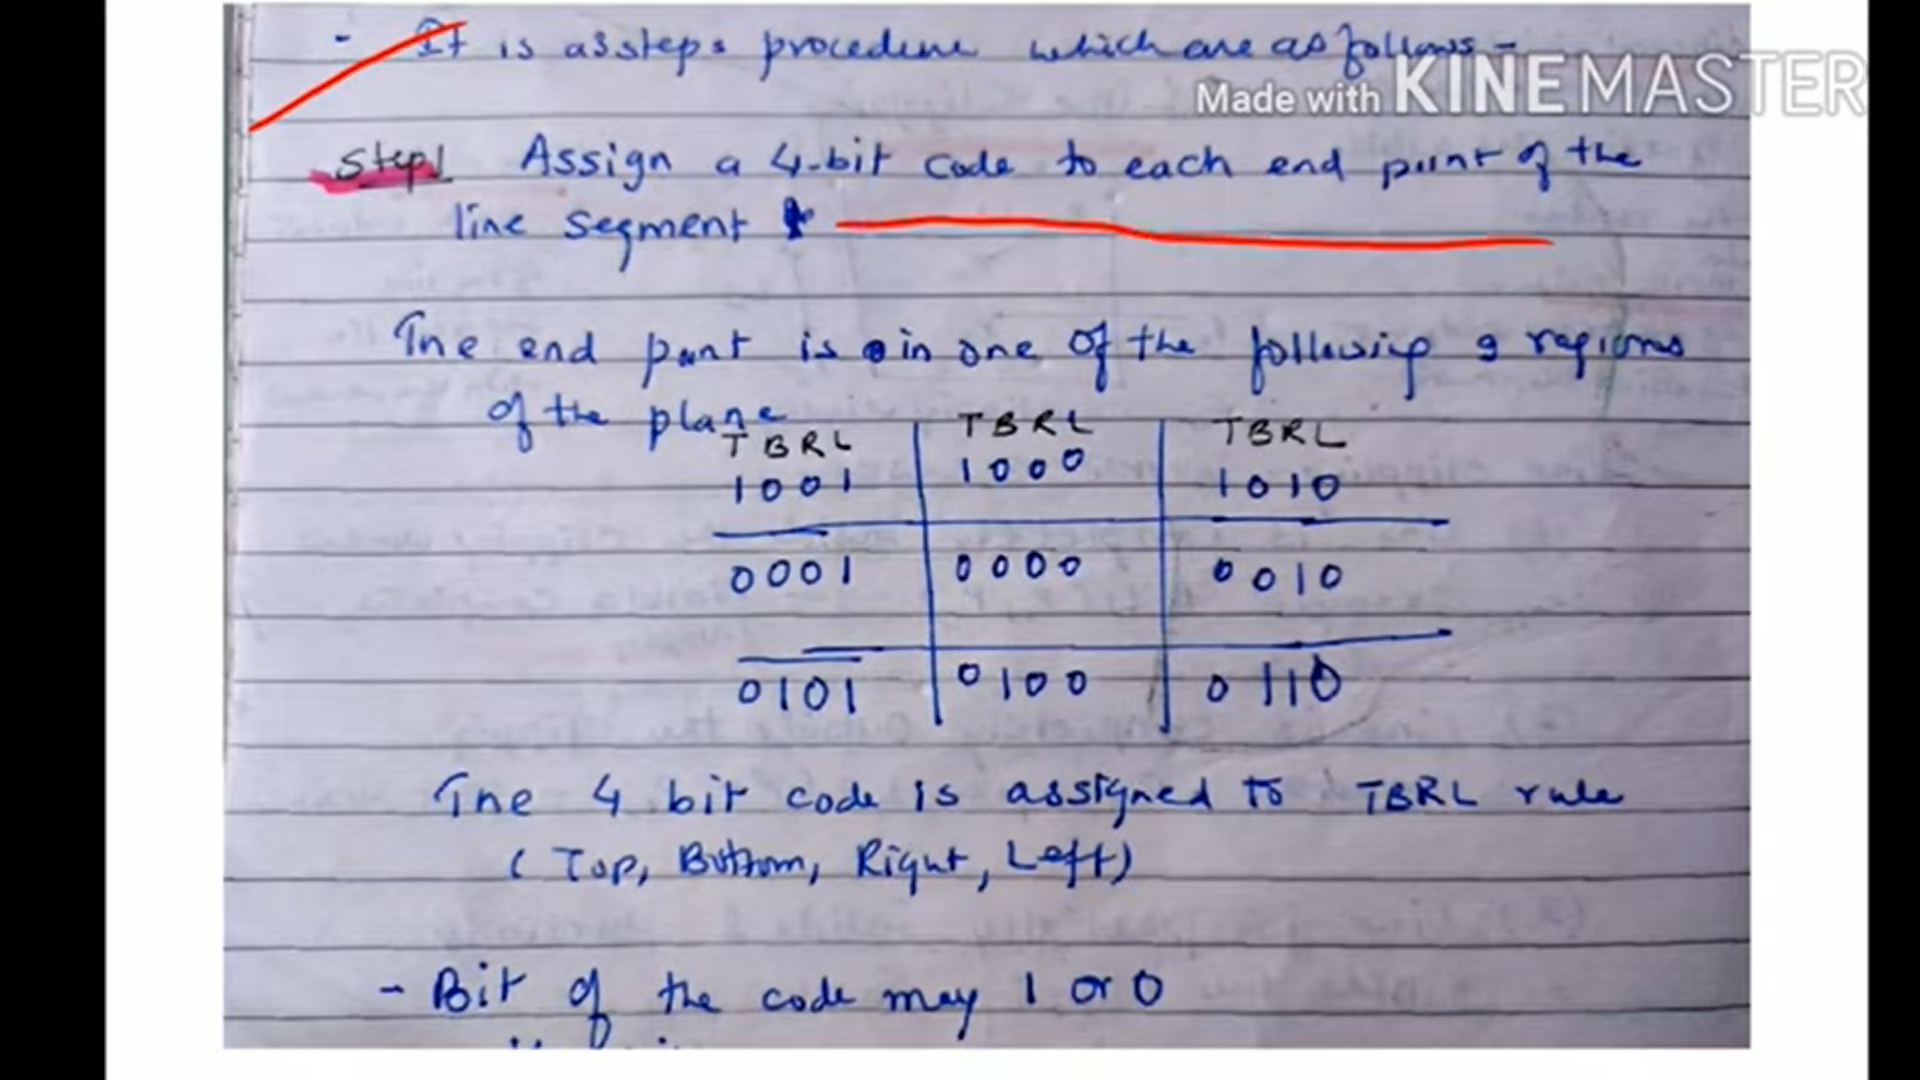 - It is a 3 steps procedure which are as follows -
Made with KINEMASTER
Step1 Assign a 4-bit code to each end point of the
line segment
The end point is in one of the following 9 regions
of the plane
TBRL TBRL TBRL
1001 1000 1010
0001 0000 0010
0101 0100 0110
The 4 bit code is assigned to TBRL rule
( Top, Bottom, Right, Left)
- Bit of the code may 1 or 0